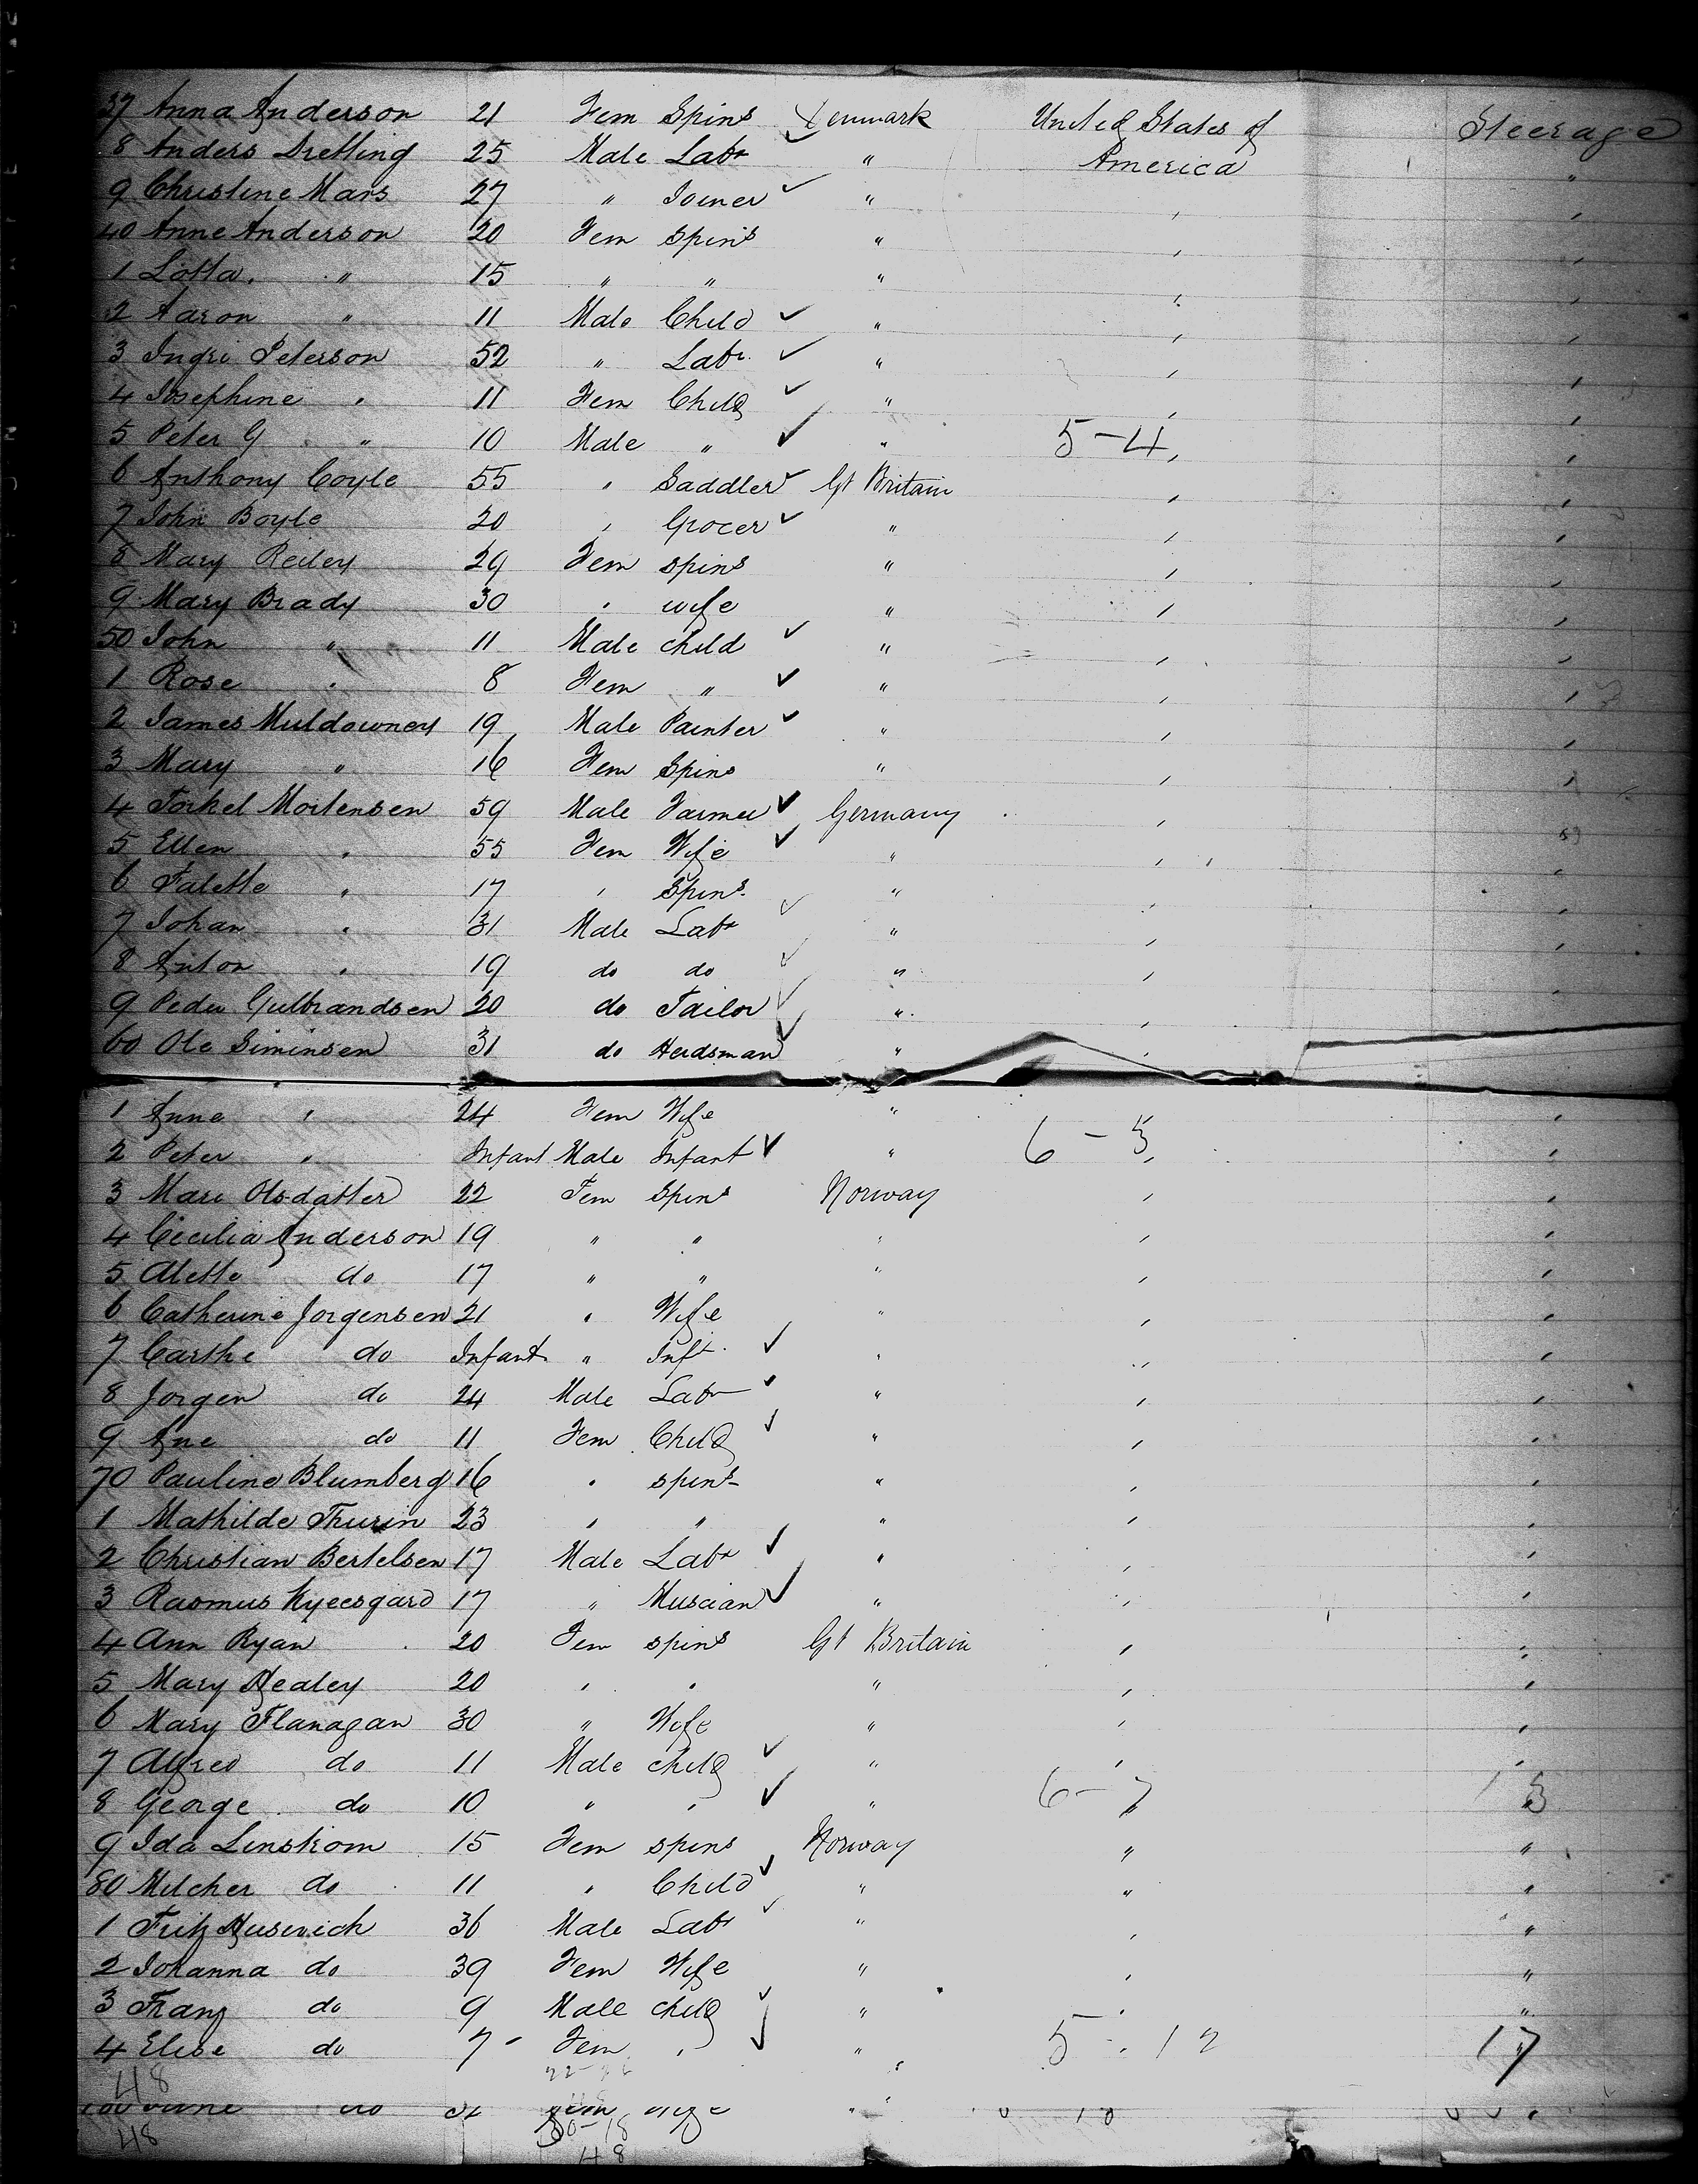 37 Anna Anderson 21 Fem Spins Denmark United States of Steerage
8 Anders Dretling 25 Male Labr " America "
9 Christine Mars 27 " Joiner " " "
40 Anne Anderson 20 Fem Spins " " "
1 Lotta " 15 " " " " "
2 Aaron " 11 Male Child " " "
3 Ingri Peterson 52 " Labr " " "
4 Josephine " 11 Fem Child " " "
5 Peter G " 10 Male " " 5-4 "
6 Anthony Coyle 55 " Saddler Gt Britain " "
7 John Boyle 20 " Grocer " " "
8 Mary Reiley 29 Fem spins " " "
9 Mary Brady 30 " wife " " "
50 John " 11 Male child " " "
1 Rose " 8 Fem " " " "
2 James Muldowney 19 Male Painter " " "
3 Mary " 16 Fem Spins " " "
4 Torkel Mortensen 59 Male Farmer Germany " "
5 Ellen " 55 Fem Wife " " "
6 Falette " 17 " Spins " " "
7 Johan " 31 Male Labr " " "
8 Anton " 19 do do " " "
9 Peder Gulbrandsen 20 do Tailor " " "
60 Ole Siminsen 31 do Herdsman " "
1 Anne " 24 Fem Wife " "
2 Peter " Infant Male Infant " 6-5 "
3 Mari Olsdatter 22 Fem Spins Norway " "
4 Cecilia Anderson 19 " " " " "
5 Alette do 17 " " " " "
6 Catherine Jorgensen 21 " Wife " " "
7 Carthe do Infant " Inft " " "
8 Jorgen do 24 Male Labr " " "
9 Ane do 11 Fem Child " " "
70 Pauline Blumberg 16 " spins " " "
1 Mathilde Thurin 23 " " " " "
2 Christian Bertelsen 17 Male Labr " " "
3 Rasmus Kyeesgard 17 " Muscian " " "
4 Ann Ryan 20 Fem spins Gt Britain " "
5 Mary Healey 20 " " " " "
6 Mary Flanagan 30 " Wife " " "
7 Alfred do 11 Male child " " "
8 George do 10 " " " 6-7 13
9 Ida Linstrom 15 Fem spins Norway " "
80 Milcher do 11 " Child " " "
1 Fritz Huserich 36 Male Labr " " "
2 Johanna do 39 Fem Wife " " "
3 Franz do 9 Male child " " "
4 Elise do 7 Fem " " 5 12 17
48
48 30-18
48